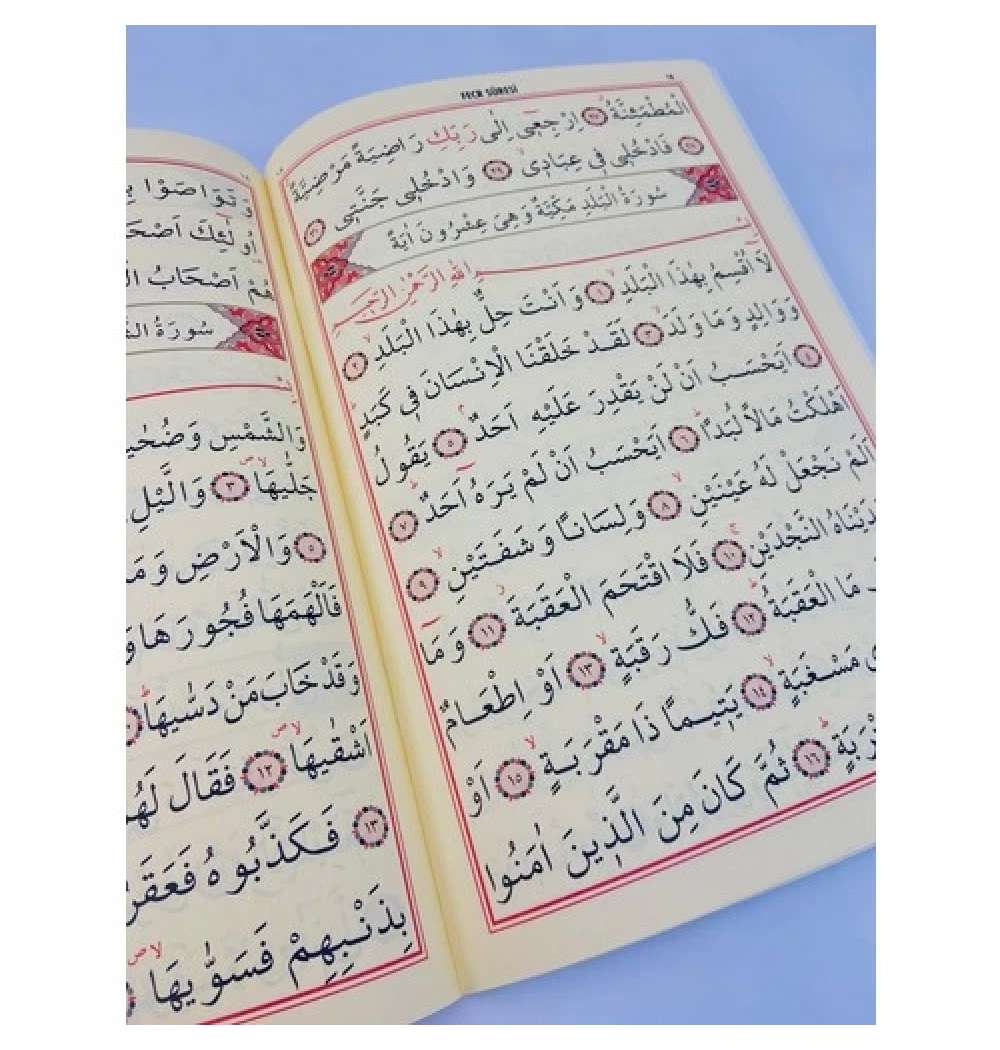 FECR SÛRESİ
الْمُطْمَئِنَّةُ ﴿٢٧﴾ اِرْجِع۪ٓي اِلٰى رَبِّكِ رَاضِيَةً مَرْضِيَّةً
﴿٢٨﴾ فَادْخُل۪ي ف۪ي عِبَاد۪ي ﴿٢٩﴾ وَادْخُل۪ي جَنَّت۪ي ﴿٣٠﴾
سُورَةُ الْبَلَدِ مَكِّيَّةٌ وَهِيَ عِشْرُونَ اٰيَةً
بِسْمِ اللّٰهِ الرَّحْمٰنِ الرَّح۪يمِ
لَٓا اُقْسِمُ بِهٰذَا الْبَلَدِ ﴿١﴾ وَاَنْتَ حِلٌّ بِهٰذَا الْبَلَدِ ﴿٢﴾
وَوَالِدٍ وَمَا وَلَدَ ﴿٣﴾ لَقَدْ خَلَقْنَا الْاِنْسَانَ ف۪ي كَبَدٍ
﴿٤﴾ اَيَحْسَبُ اَنْ لَنْ يَقْدِرَ عَلَيْهِ اَحَدٌ ﴿٥﴾ يَقُولُ
اَهْلَكْتُ مَالاً لُبَداً ﴿٦﴾ اَيَحْسَبُ اَنْ لَمْ يَرَهُٓ اَحَدٌ ﴿٧﴾
اَلَمْ نَجْعَلْ لَهُ عَيْنَيْنِ ﴿٨﴾ وَلِسَاناً وَشَفَتَيْنِ ﴿٩﴾
دَيْنَاهُ النَّجْدَيْنِ ﴿١٠﴾ فَلَا اقْتَحَمَ الْعَقَبَةَ ﴿١١﴾ وَمَٓا
مَا الْعَقَبَةُ ﴿١٢﴾ فَكُّ رَقَبَةٍ ﴿١٣﴾ اَوْ اِطْعَامٌ
مَسْغَبَةٍ ﴿١٤﴾ يَت۪يماً ذَا مَقْرَبَةٍ ﴿١٥﴾ اَوْ
رَبَةٍ ﴿١٦﴾ ثُمَّ كَانَ مِنَ الَّذ۪ينَ اٰمَنُوا
وَتَوَاصَوْا
اُولٰٓئِكَ اَصْحَا
هُمْ اَصْحَابُ
سُورَةُ
وَالشَّمْسِ وَضُحٰيـ
جَلّٰيهَا ﴿٣﴾ وَالَّيْلِ
﴿٥﴾ وَالْاَرْضِ وَمَا
فَاَلْهَمَهَا فُجُورَهَا وَ
وَقَدْ خَابَ مَنْ دَسّٰيهَا
اَشْقٰيهَا ﴿١٢﴾ فَقَالَ لَهُمْ
﴿١٣﴾ فَكَذَّبُوهُ فَعَقَرُ
بِذَنْبِهِمْ فَسَوّٰيهَا